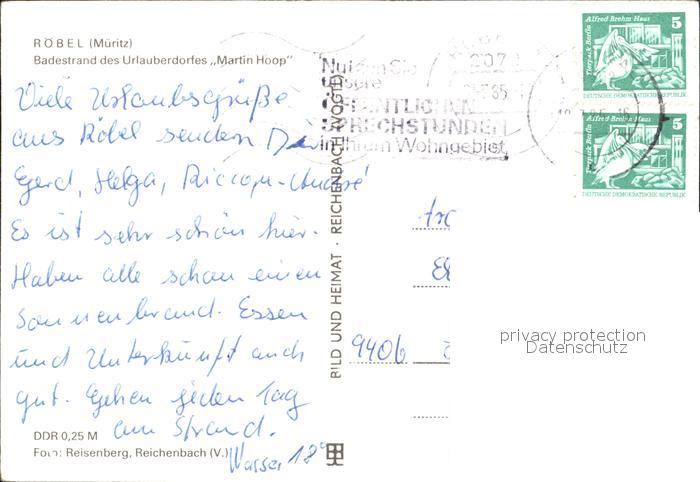 RÖBEL (Müritz)
Badestrand des Urlauberdorfes „Martin Hoop"
Viele Urlaubsgrüße
aus Röbel senden
Gerd, Helga,
Es ist sehr schön hier.
Haben alle schon einen
Sonnenbrand. Essen
und Unterkunft auch
gut. Gehen jeden Tag
am Strand.
Wasser 18°
DDR 0,25 M
Foto: Reisenberg, Reichenbach (V.)
BILD UND HEIMAT · REICHENBACH (VOGTL)
Nutzen Sie
unsere
ÖFFENTLICHEN
SPRECHSTUNDEN
in Ihrem Wohngebiet
2070
85
Alfred Brehm Haus
Tierpark Berlin
5
DEUTSCHE DEMOKRATISCHE REPUBLIK
Alfred Brehm Haus
Tierpark Berlin
5
DEUTSCHE DEMOKRATISCHE REPUBLIK
9406
privacy protection
Datenschutz